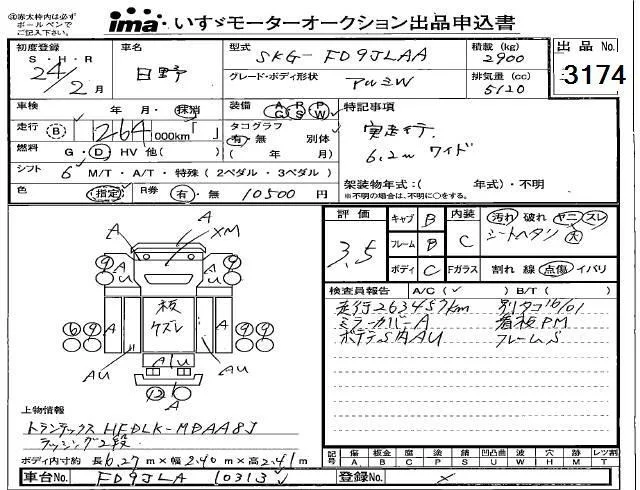 ㊟赤太枠内は必ず
ボールペンで
ご記入下さい。
ima いすゞモーターオークション出品申込書
初度登録
S・H・R
24年
2月
車名
日野
型式
SKG-FD9JLAA
グレード・ボディ形状
アルミW
積載(kg)
2900
排気量(cc)
5120
出品No.
3174
車検 年・月・抹消
装備 AC PS PW
特記事項
走行 B 264 000km「 」
タコグラフ
有・無 別体
実走行.
6.2m ワイド
燃料 G・D・HV 他( ) ( 年 月)
シフト 6 M/T・A/T・特殊(2ペダル・3ペダル)
架装物年式:( 年式)・不明
※不明の場合は、不明に○をする。
色 指定 R券 有・無 10500円
評価
3.5
キャブ B
フレーム B
ボディ C
内装 C
汚れ 破れ ヤニ スレ
シートヘタリ 大
Fガラス 割れ 線 点傷 イバリ
検査員報告 A/C(✓) B/T( )
走行263457km 別タコ16/01
ミラーカバーA 看板PM
ボデサAAU フレームS
A
A XM
9 A U A U 9
6 9 A 板 ケズレ A 9 9
A U AU
AU AU
12 A
上物情報
トランテックス HFDLK-MDAA8J
ラッシング2段
ボディ内寸約 長6.27m×幅2.40m×高2.41m
記号 傷A 板金B 腐C 塗P 錆S 凹凸曲U 波W 穴H 跡M レツ割T
車台No. FD9JLA 10313
登録No.